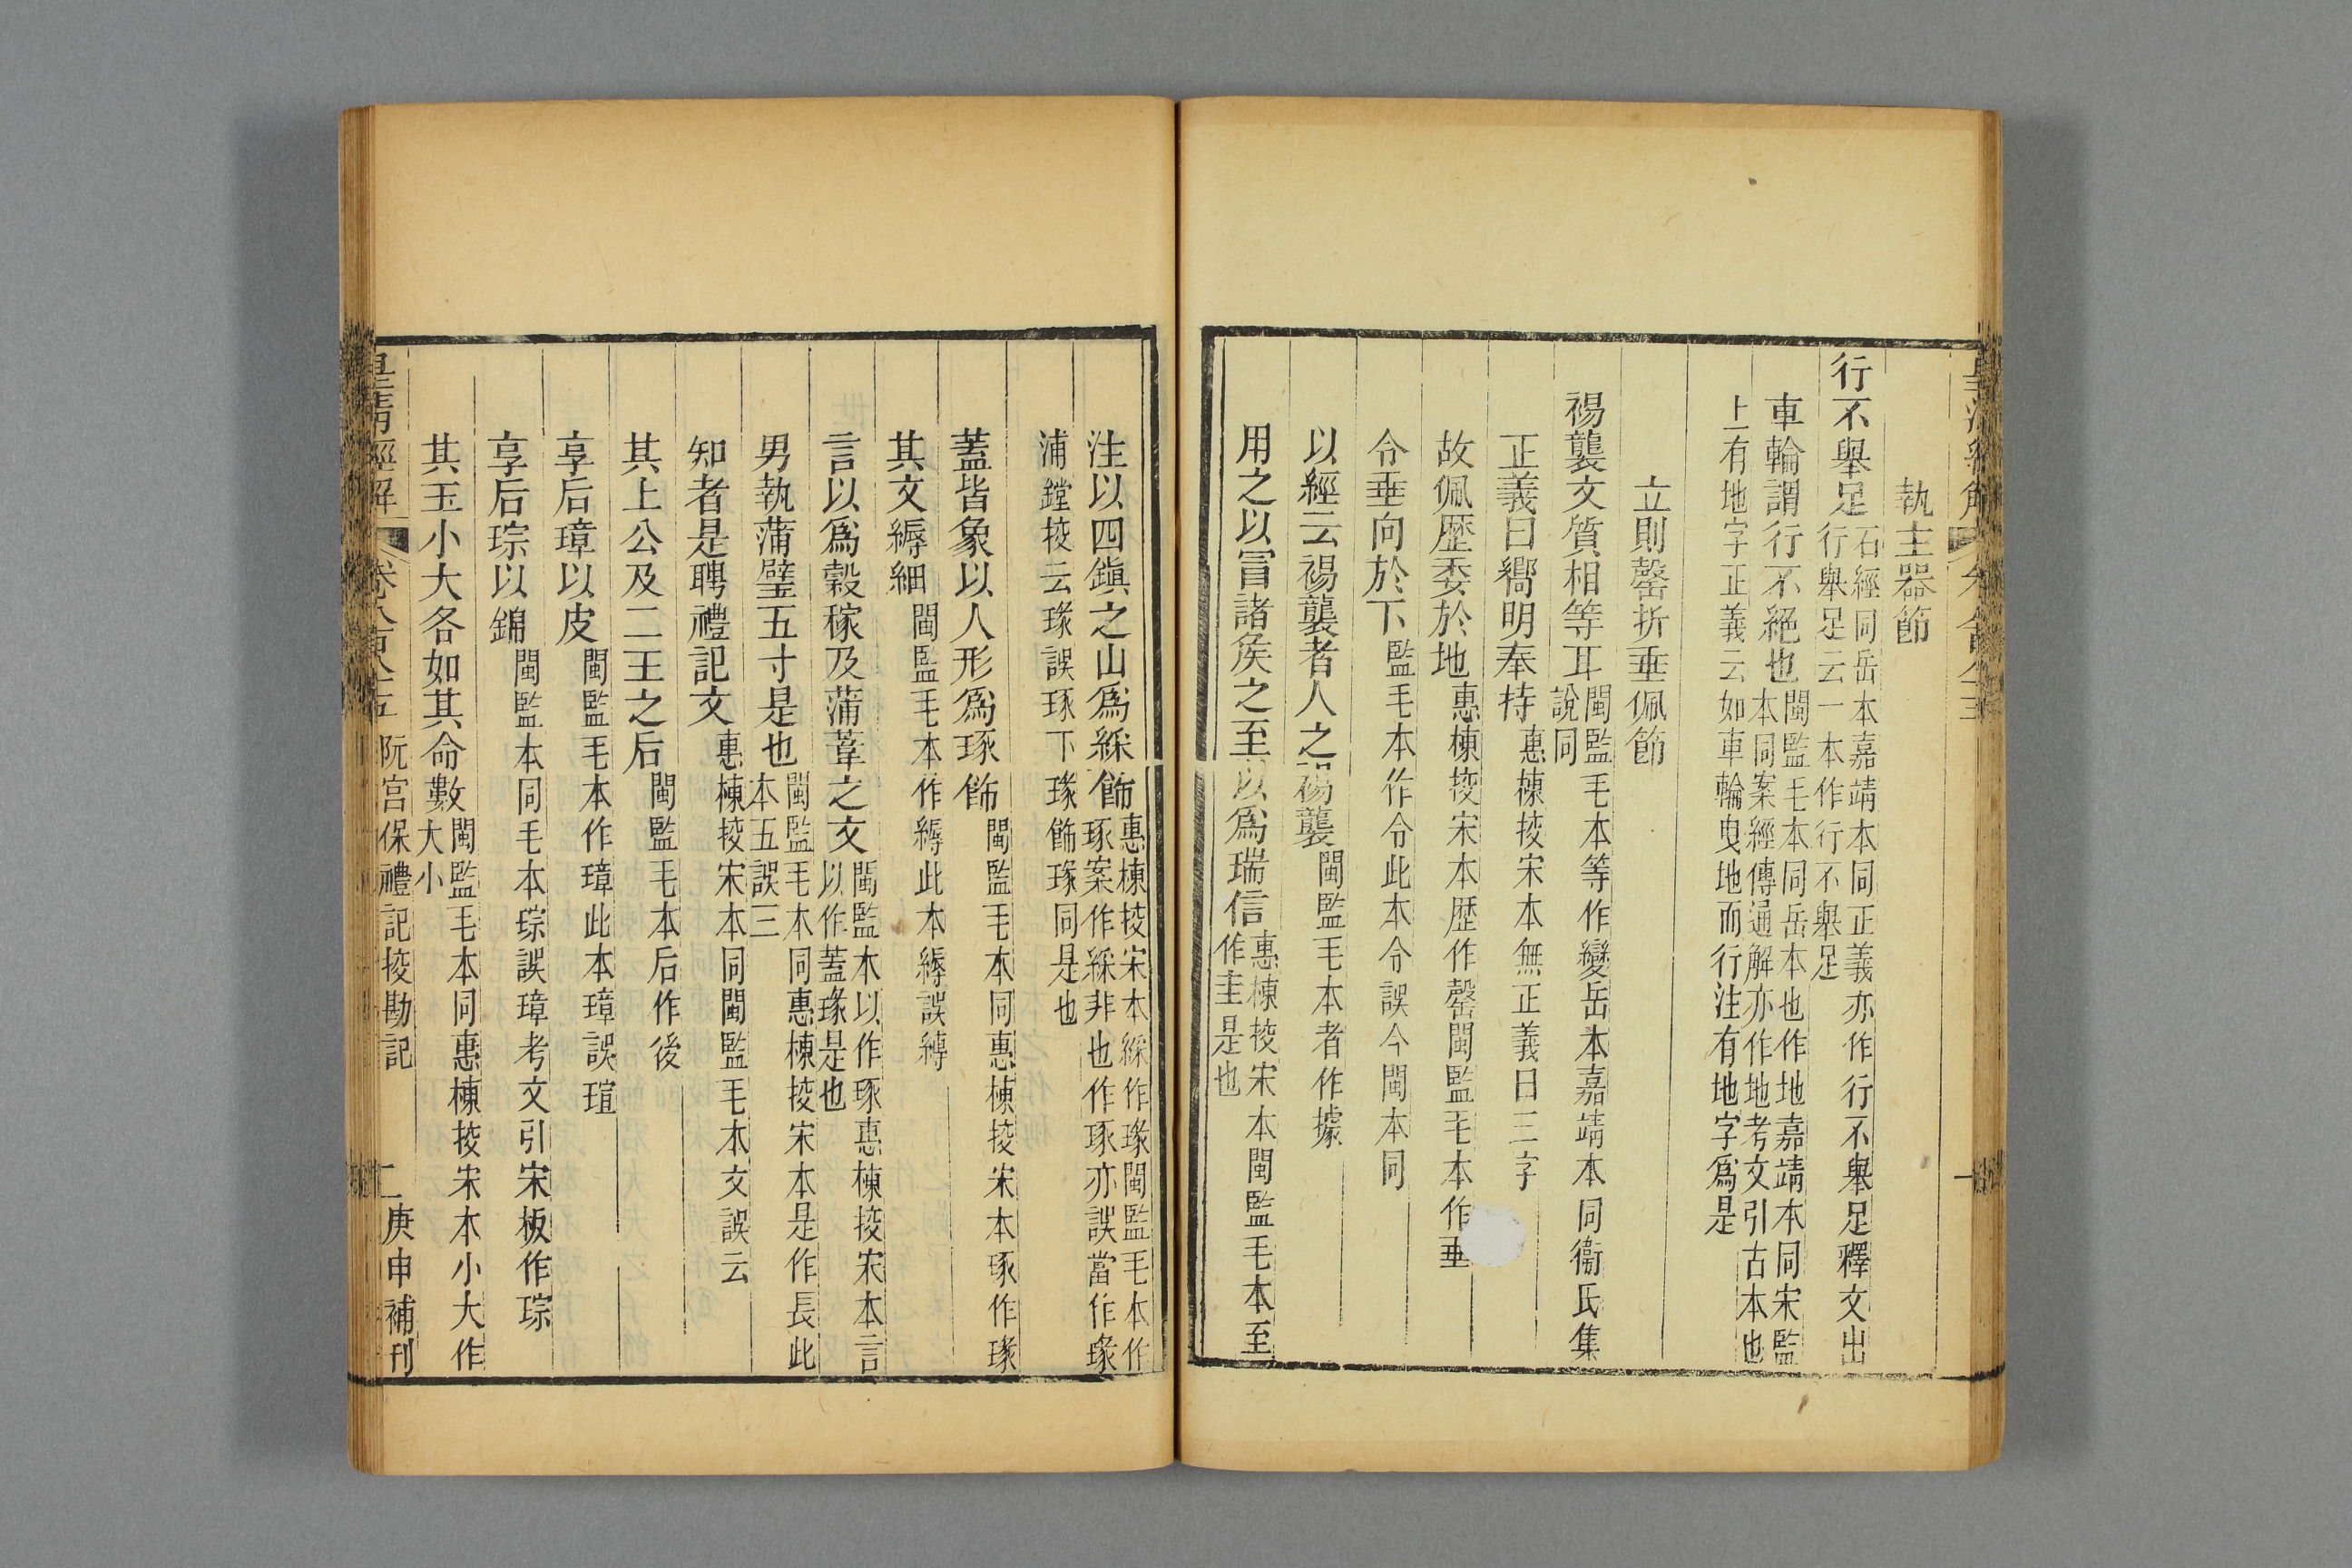 執主器節
行不舉足石經同岳本嘉靖本同正義亦作行不舉足釋文出行舉足云一本作行不舉足
車輪謂行不絕也閩監毛本同岳本也作地嘉靖本同宋監本同案經傳通解亦作地考文引古本也
上有地字正義云如車輪曳地而行注有地字爲是
立則罄折垂佩節
裼襲文質相等耳閩監毛本等作變岳本嘉靖本同衞氏集說同
正義曰嚮明奉持惠棟挍宋本無正義曰三字
故佩歷委於地惠棟挍宋本歷作罄閩監毛本作垂
令垂向於下監毛本作令此本令誤今閩本同
以經云裼襲者人之裼襲閩監毛本者作據
用之以冒諸矦之至以爲瑞信惠棟挍宋本閩監毛本至作圭是也
注以四鎭之山爲綵飾惠棟挍宋本綵作瑑閩監毛本作琢案作綵非也作琢亦誤當作瑑
浦鏜挍云瑑誤琢下瑑飾瑑同是也
蓋皆象以人形爲琢飾閩監毛本同惠棟挍宋本琢作瑑
其文縟細閩監毛本作縟此本縟誤縛
言以爲穀稼及蒲葦之文閩監本以作琢惠棟挍宋本言以作蓋瑑是也
男執蒲璧五寸是也閩監毛本同惠棟挍宋本是作長此本五誤三
知者是聘禮記文惠棟挍宋本同閩監毛本文誤云
其上公及二王之后閩監毛本后作後
享后璋以皮閩監毛本作璋此本璋誤瑄
享后琮以錦閩監本同毛本琮誤璋考文引宋板作琮
其玉小大各如其命數閩監毛本同惠棟挍宋本小大作大小
皇清經解
阮宮保禮記挍勘記
二
庚申補刊